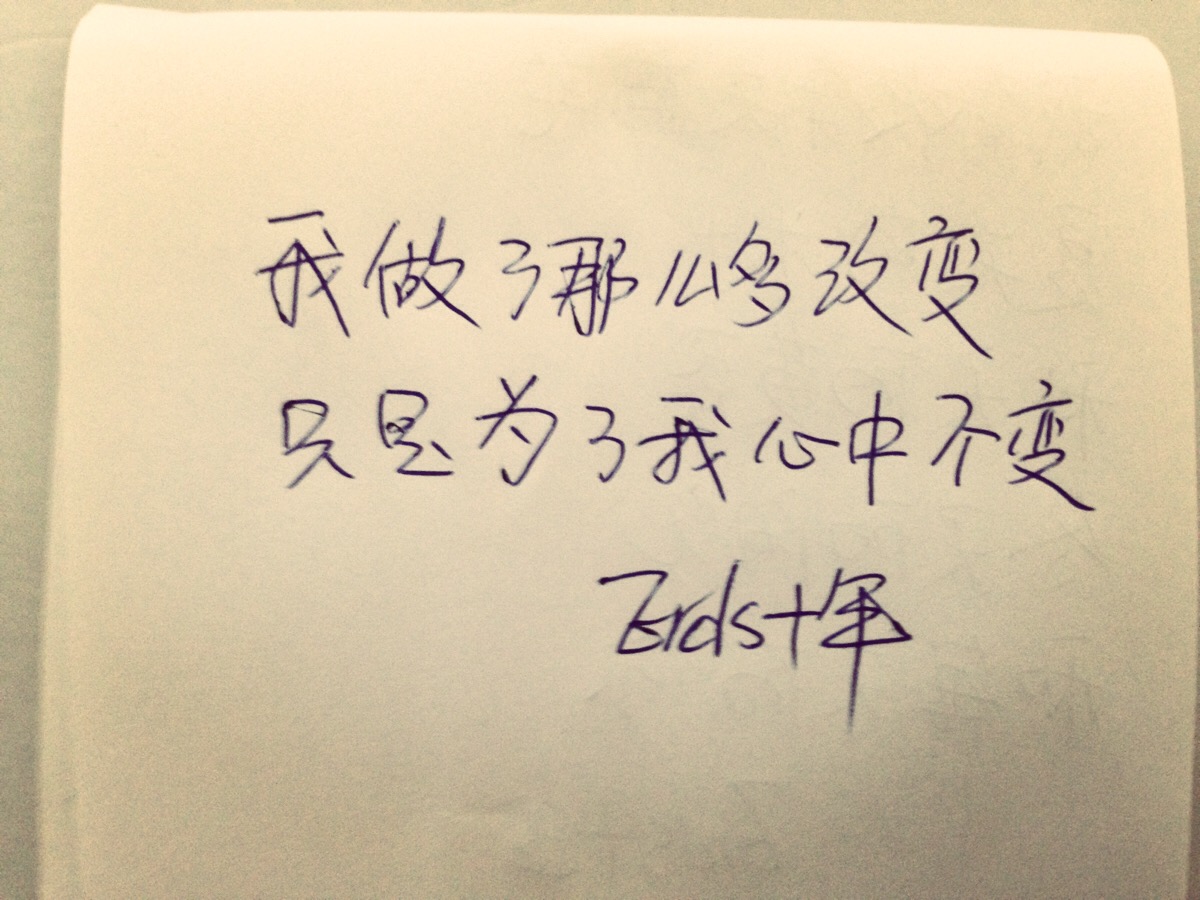 我做了那么多改变
只是为了我心中不变
Erds十年